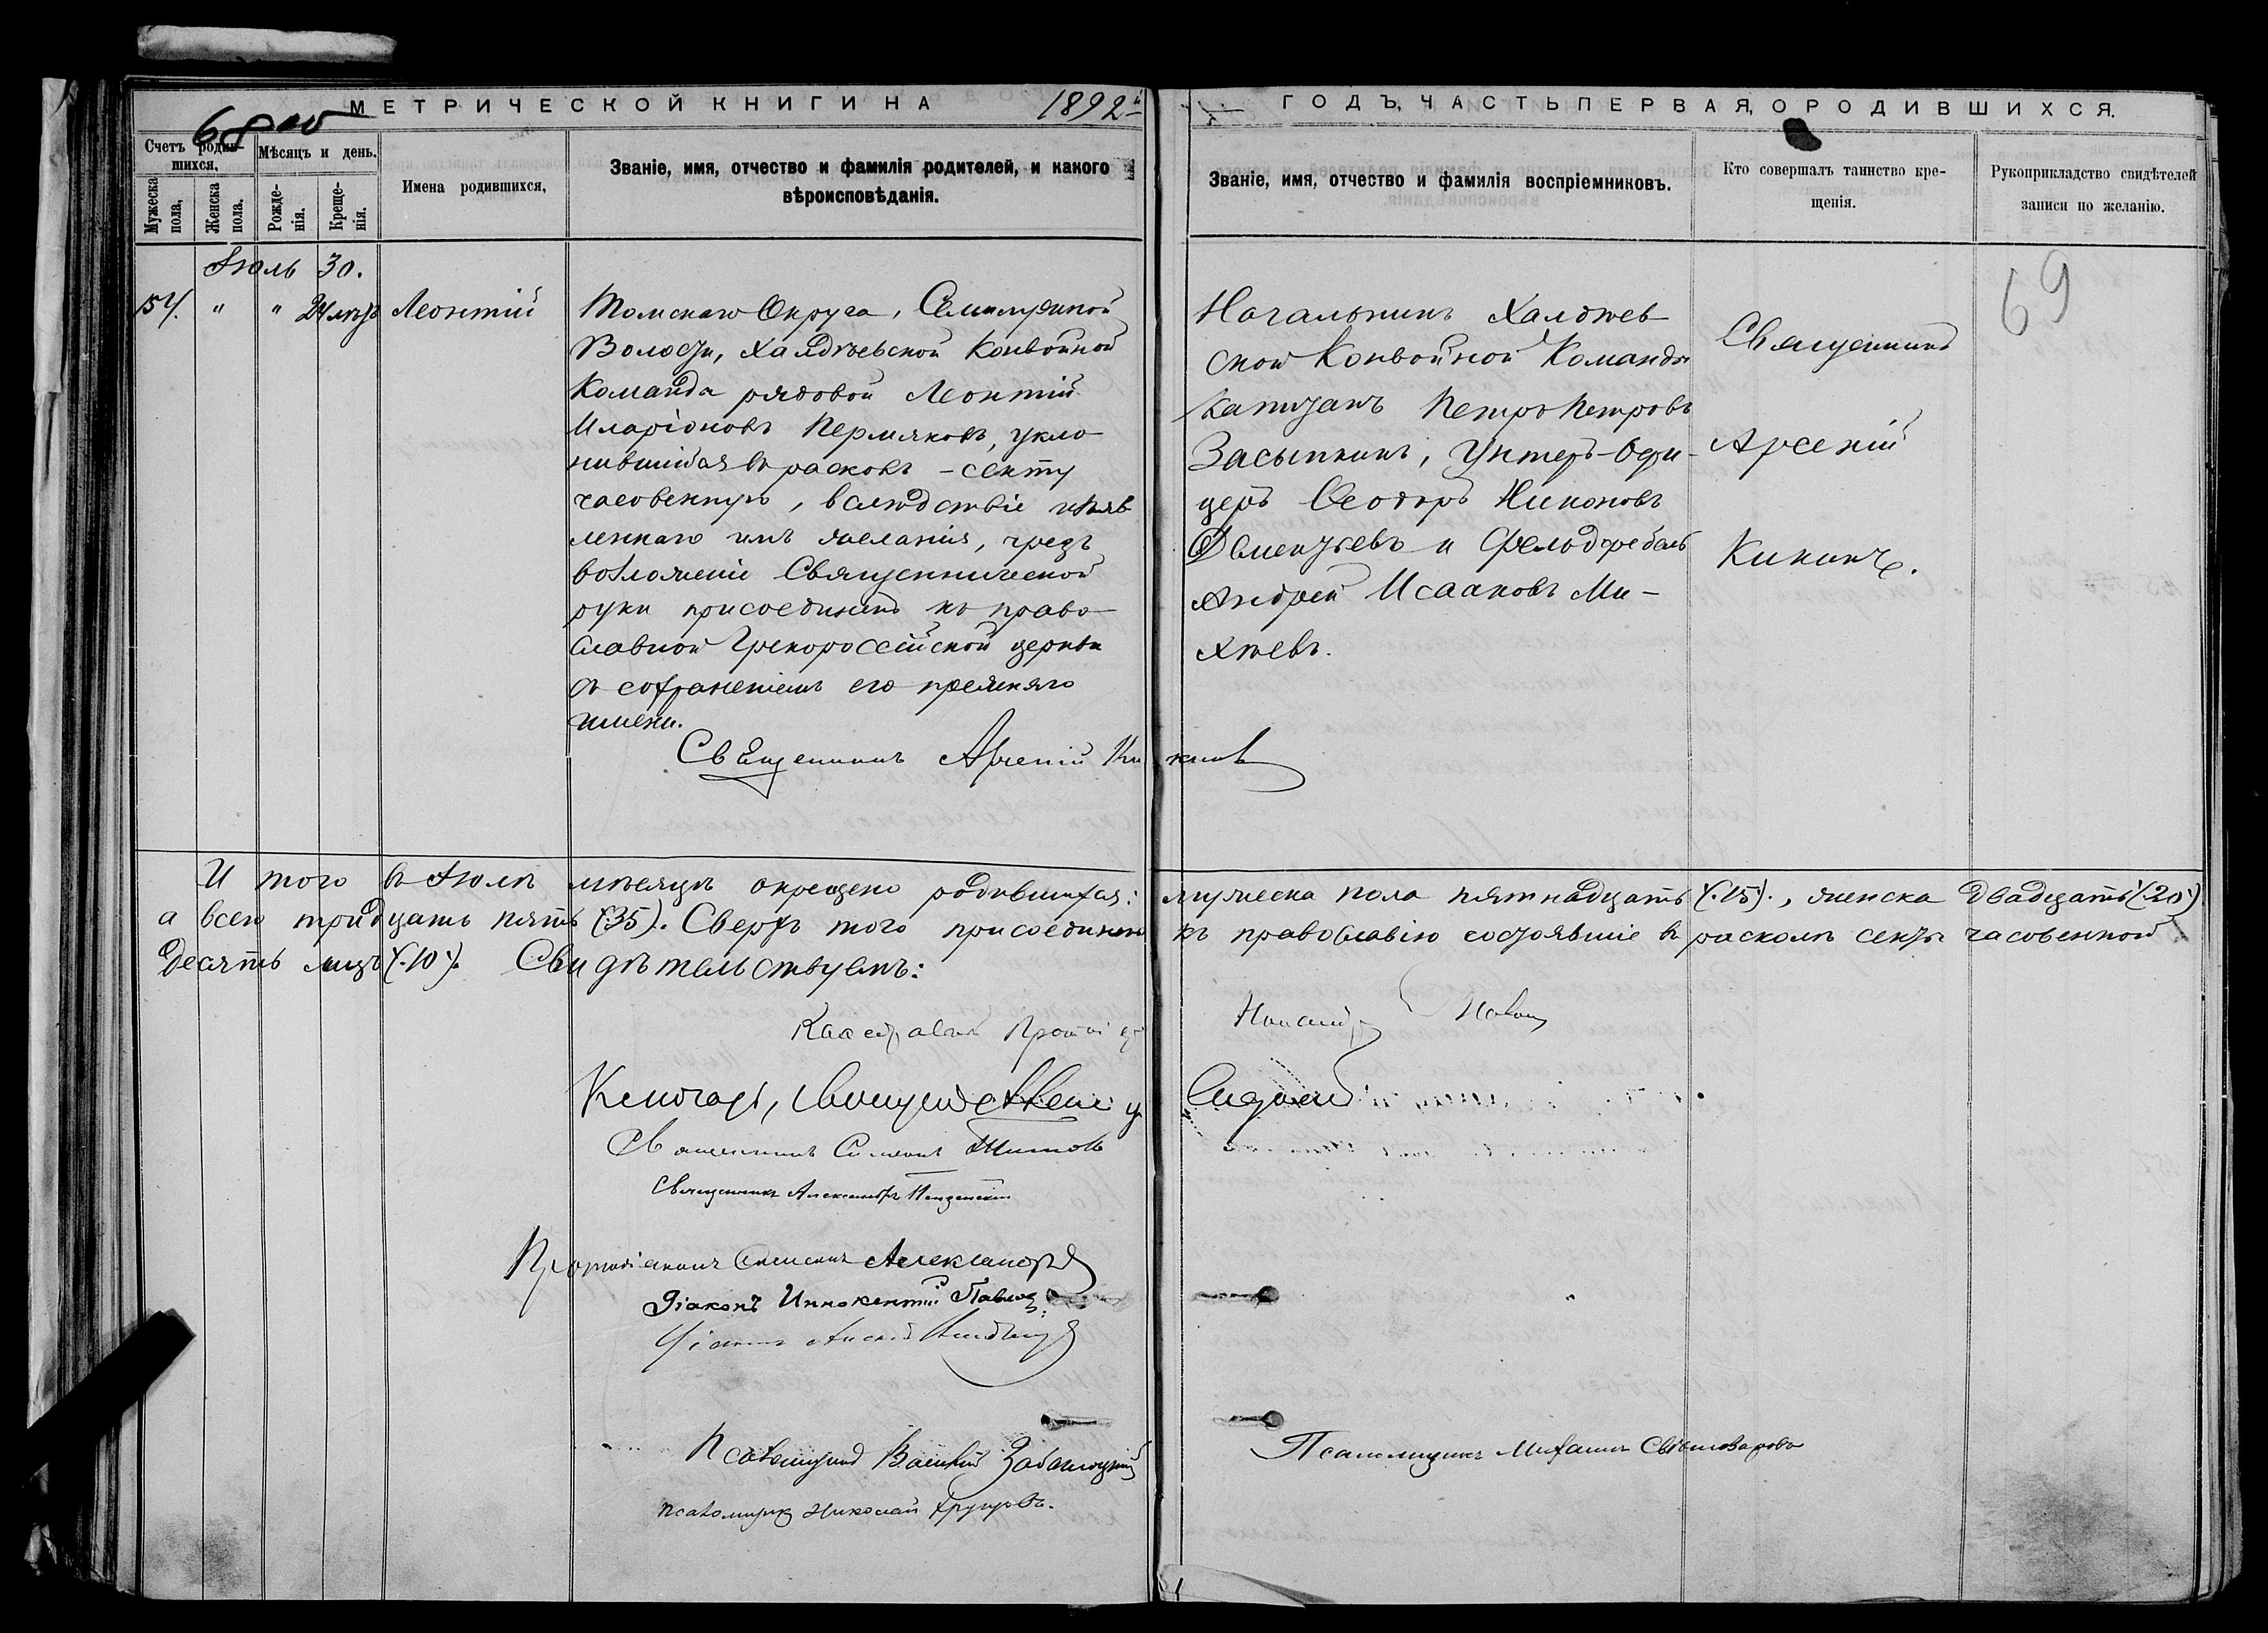 МЕТРИЧЕСКОЙ КНИГИ НА 1892й
ГОДЪ, ЧАСТЬ ПЕРВАЯ, О РОДИВШИХСЯ.
68 об
Счетъ родив-
шихся.
Мужеска пола.
Женска пола.
Мѣсяцъ и день.
Рожде-
нія.
Креще-
нія.
Имена родившихся,
Званіе, имя, отчество и фамилія родителей, и какого
вѣроисповѣданія.
Званіе, имя, отчество и фамилія воспріемниковъ.
Кто совершалъ таинство кре-
щенія.
Рукоприкладство свидѣтелей
записи по желанію.
69
Іюль 30.
" " 24 лѣтъ Леонтій
Томскаго Округа, Семилужной
Волости, Халдѣевской Конвойной
Команды рядовой Леонтій
Иларіоновъ Пермяковъ, укло-
нившійся въ расколъ - секту
часовенную, вслѣдствіе изъяв
леннаго имъ желанія, чрезъ
возложеніе Священнической
руки присоединенъ къ право-
славной Грекороссійской церкви
съ сохраненіемъ его прежняго
имени.
Священникъ Арсеній Кикинъ
Начальникъ Халдѣев-
ской Конвойной Команды
Капитанъ Петръ Петровъ
Засыпкинъ, Унтеръ-Офи-
церъ Ѳеодоръ Никоновъ
Дементьевъ и Фельдфебель
Андрей Исааковъ Ми-
хѣевъ.
Священникъ
Арсеній
Кикинъ.
И того въ Іюлѣ мѣсяцѣ окрещено родившихся: мужеска пола пятнадцать (15)., женска двадцать (20)
а всего тридцать пять (35). Сверхъ того присоединено къ православію состоявшіе въ расколѣ секты часовенной
десять лицъ (10). Свидѣтельствуемъ:
Каѳедральный
Ключарь, Священникъ
Священникъ Симеонъ Титовъ
Священникъ Александръ
Протодіаконъ Александровъ
Діаконъ Иннокентій Павлов
Діаконъ
Псаломщикъ Василій Заболоцкій
Псаломщикъ Николай
Псаломщикъ Михаилъ